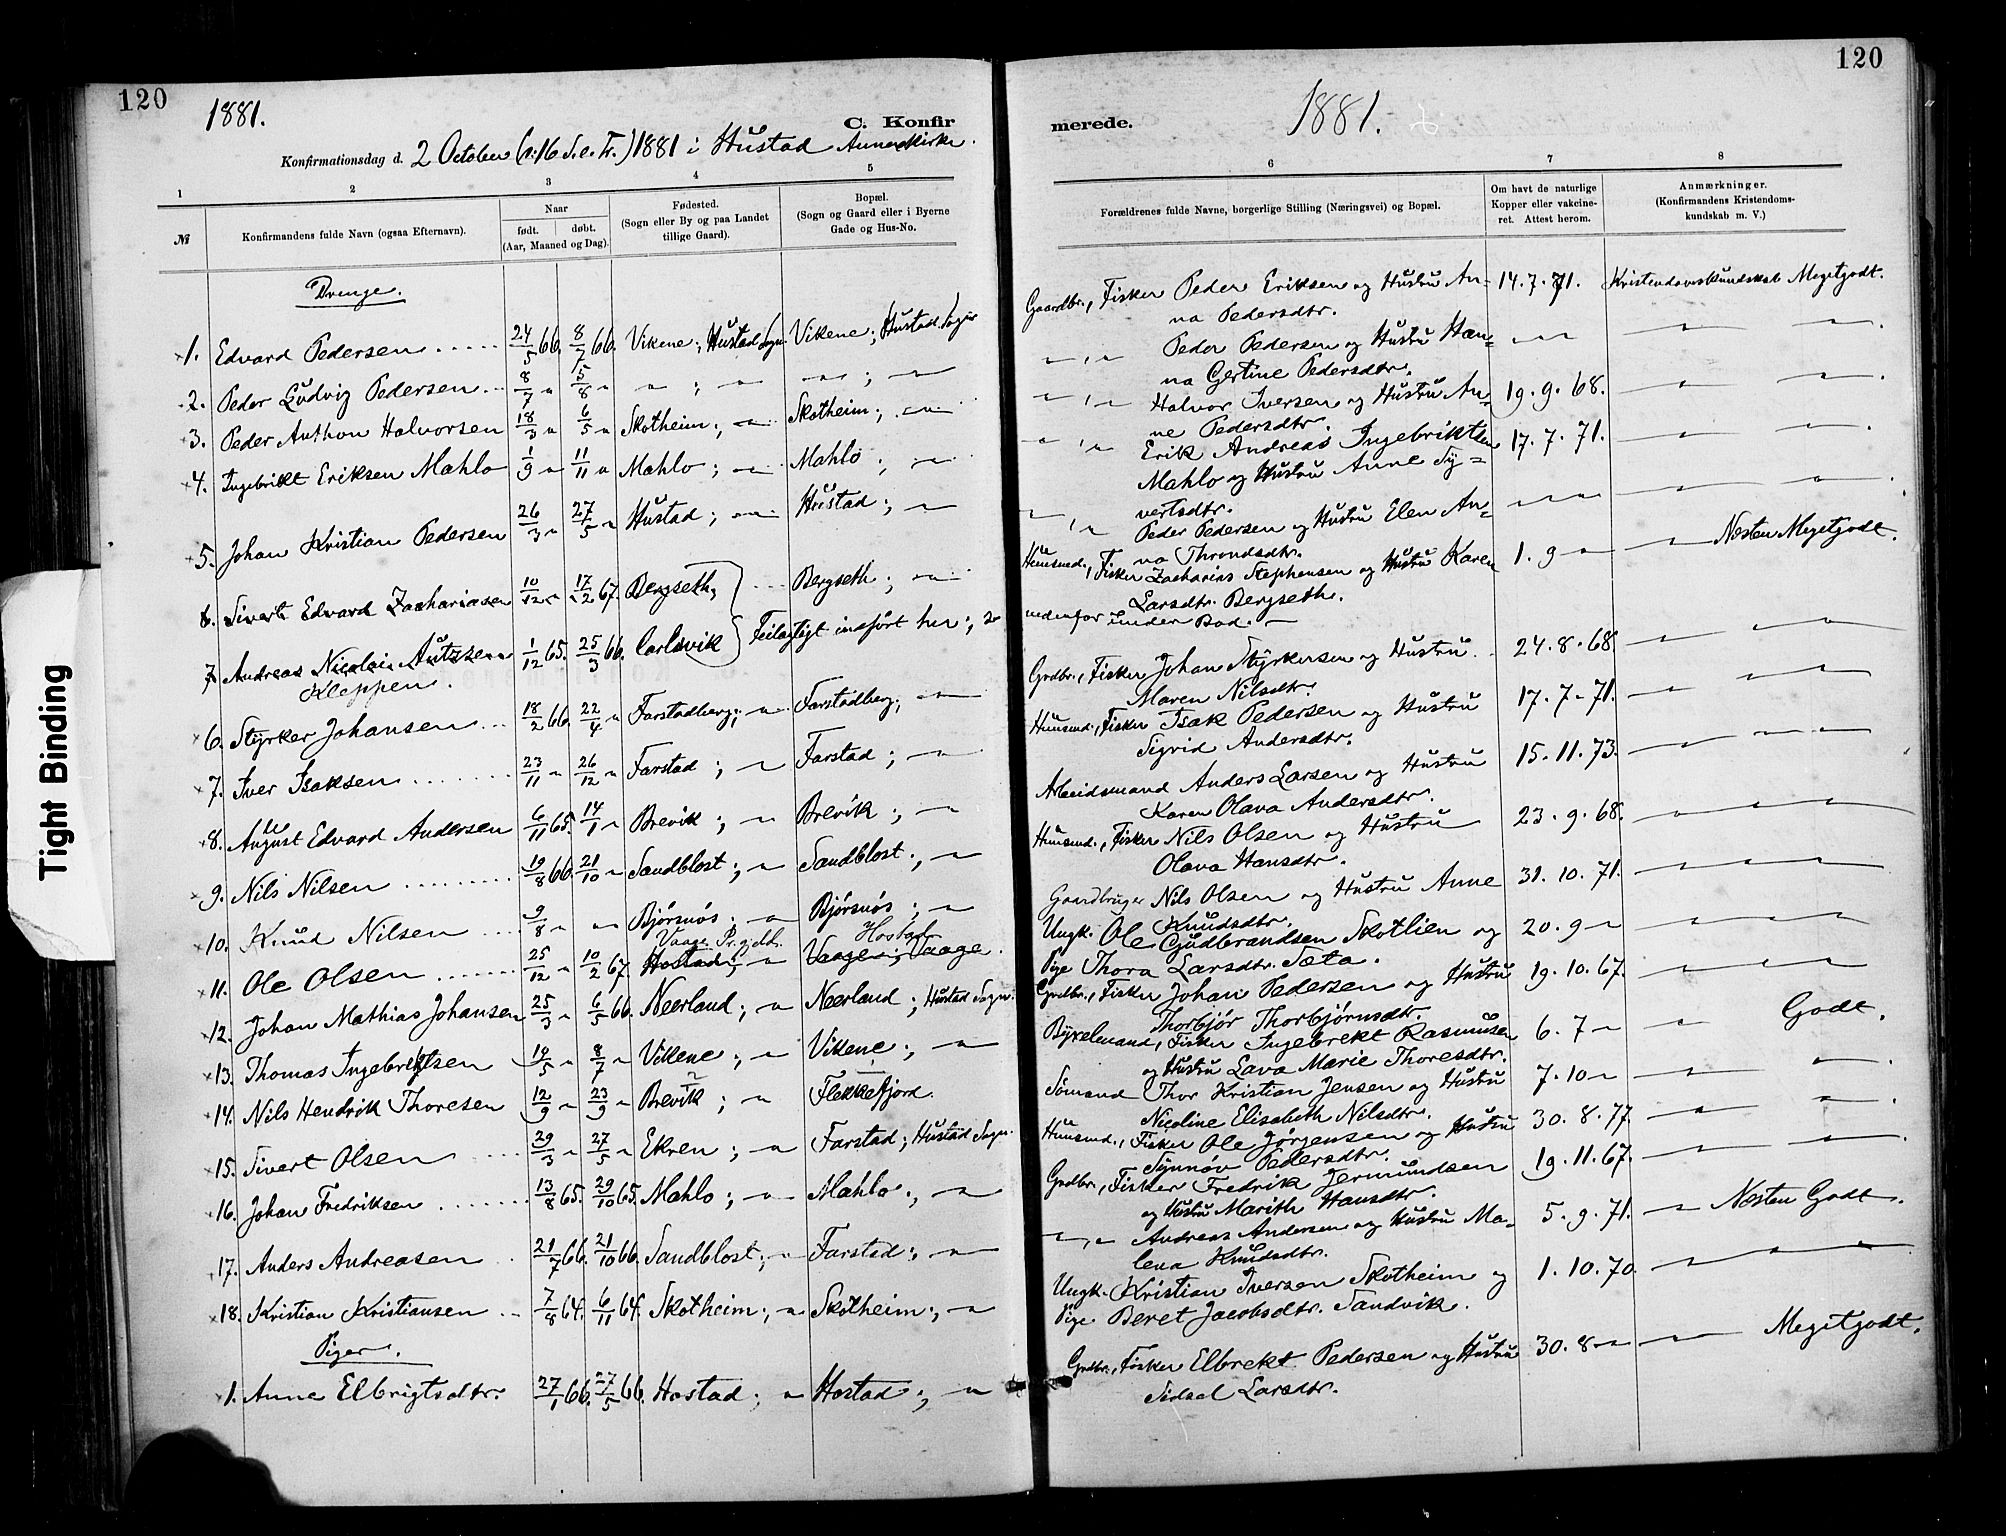 120
120
1881.
1881.
C. Konfir
merede.
Konfirmationsdag d. 2 October (: 16 S. e. Tr.) 1881 i Hustad Annexkirke.
1 2 3 4 5
6 7 8
№
Konfirmandens fulde Navn (ogsaa Efternavn).
Naar
født. døbt.
(Aar, Maaned og Dag).
Fødested.
(Sogn eller By og paa Landet
tillige Gaard).
Bopæl.
(Sogn og Gaard eller i Byerne
Gade og Hus-No.
Forældrenes fulde Navne, borgerlige Stilling (Næringsvei) og Bopæl.
Om havt de naturlige
Kopper eller vakcine-
ret. Attest herom.
Anmærkninger.
(Konfirmandens Kristendoms-
kundskab m. V.)
Drenge.
1. Edvard Pedersen 24/5 66. 8/7 66. Vikene; Hustad Sogn. Vikene; Hustad Sogn
2. Peder Ludvig Pedersen 8/7 " 5/8 " " ; " " ; "
3. Peder Anthon Halvorsen 18/3 " 6/5 " Skotheim; " Skotheim; "
4. Ingebrikt Eriksen Mahlo 1/9 " 11/11 " Mahlo; " Mahlo; "
5. Johan Kristian Pedersen 26/3 " 27/5 " Hustad; " Hustad; "
6. Sivert Edvard Zachariasen 10/12 " 17/2 67. Bergseth; Bergseth; "
7 Andreas Nicolai 1/12 65. 25/3 66. Carlsvik Feilagtigt indført her; se
Kleppen.
6. Styrker Johansen 18/2 66. 22/4 " Farstadberg; " Farstadberg; "
7. Iver Isaksen 23/11 " 26/12 " Farstad; " Farstad; "
8. August Edvard Andersen 6/11 65. 14/1 " Brevik; " Brevik; "
9. Nils Nilsen 19/8 66. 21/10 " Sandblost; " Sandblost; "
10. Knud Nilsen 9/8 " " Bjørsnøs; " Bjørsnøs; "
Vaage Pr.gjeld. Hostad
11. Ole Olsen 25/12 " 10/2 67. Hostad; " Vaage; Vaage.
12. Johan Mathias Johansen 25/3 " 6/5 66. Neerland; " Neerland; Hustad Sogn.
13. Thomas Ingebrektsen 19/5 " 8/7 " Vikene; " Vikene; "
14. Nils Hendrik Thoresen 12/9 " 23/9 " Brevik; " Flekkefjord.
15. Sivert Olsen 29/3 " 27/5 " Ekren; " Farstad; Hustad Sogn.
16. Johan Fredriksen 13/8 65. 29/10 65. Mahlo; " Mahlo; "
17. Anders Andreasen 21/7 66. 21/10 66. Sandblost; " Farstad; "
18. Kristian Kristiansen 7/8 64. 6/11 64. Skotheim; " Skotheim; "
Piger.
1. Anne Elbrigtsdtr. 27/1 66. 27/5 66. Hostad; " Hostad; "
Gaardbr., Fisker Peder Eriksen og Hustru An- 14.7.71. Kristendomskundskab Megetgodt.
na Pedersdtr.
" , " Peder Pedersen og Hustru Han- " "
na Gertine Pedersdtr.
" , " Halvor Iversen og Hustru An- 19.9.68. "
ne Pedersdtr.
" , " Erik Andreas Ingebriktsen 17.7.71. "
Mahlo og Hustru Anne Sy-
vertsdtr.
" , " Peder Pedersen og Hustru Elen An- " "
na Throndsdtr.
Husmd., Fisker Zacharias Stephensen og Hustru Karen 1.9 " " Næsten Megetgodt.
Larsdtr. Bergseth.
nedenfor under Bud.
Grdbr., Fisker Johan Styrkersen og Hustru 24.8.68. "
Maren Nilsdtr.
Husmd., Fisker Isak Pedersen og Hustru 17.7.71. "
Sigrid Andersdtr.
Arbeidsmand Anders Larsen og Hustru 15.11.73. "
Karen Olava Andersdtr.
Husmd., Fisker Nils Olsen og Hustru 23.9.68. "
Olava Hansdtr.
Gaardbruger Nils Olsen og Hustru Anne 31.10.71. "
Knudsdtr.
Ungk. Ole Gudbrandsen Skotlien og 20.9 " "
Pige Thora Larsdtr. Sæta.
Grdbr., Fisker Johan Pedersen og Hustru 19.10.67. "
Thorbjør Thorbjørnsdtr.
Byxelmand, Fisker Ingebrekt Rasmusen 6.7 " " Godt.
og Hustru Lava Marie Thoresdtr.
Sømand Thor Kristian Jensen og Hustru 7.10 " "
Nicoline Elisabeth Nilsdtr.
Husmd., Fisker Ole Jørgensen og Hustru 30.8.77. "
Synnøv Pedersdtr.
Grdbr., Fisker Fredrik Jermundsen 19.11.67. "
og Hustru Marith Hansdtr.
" , " Andreas Andersen og Hustru Ma- 5.9.71. " Næsten Godt.
lena Knudsdtr.
Ungk. Kristian Iversen Skotheim og 1.10.70. "
Pige Beret Jacobsdtr. Sandvik.
Grdbr., Fisker Elbrekt Pedersen og Hustru 30.8 " " Megetgodt.
Sidsel Larsdtr.
Tight Binding